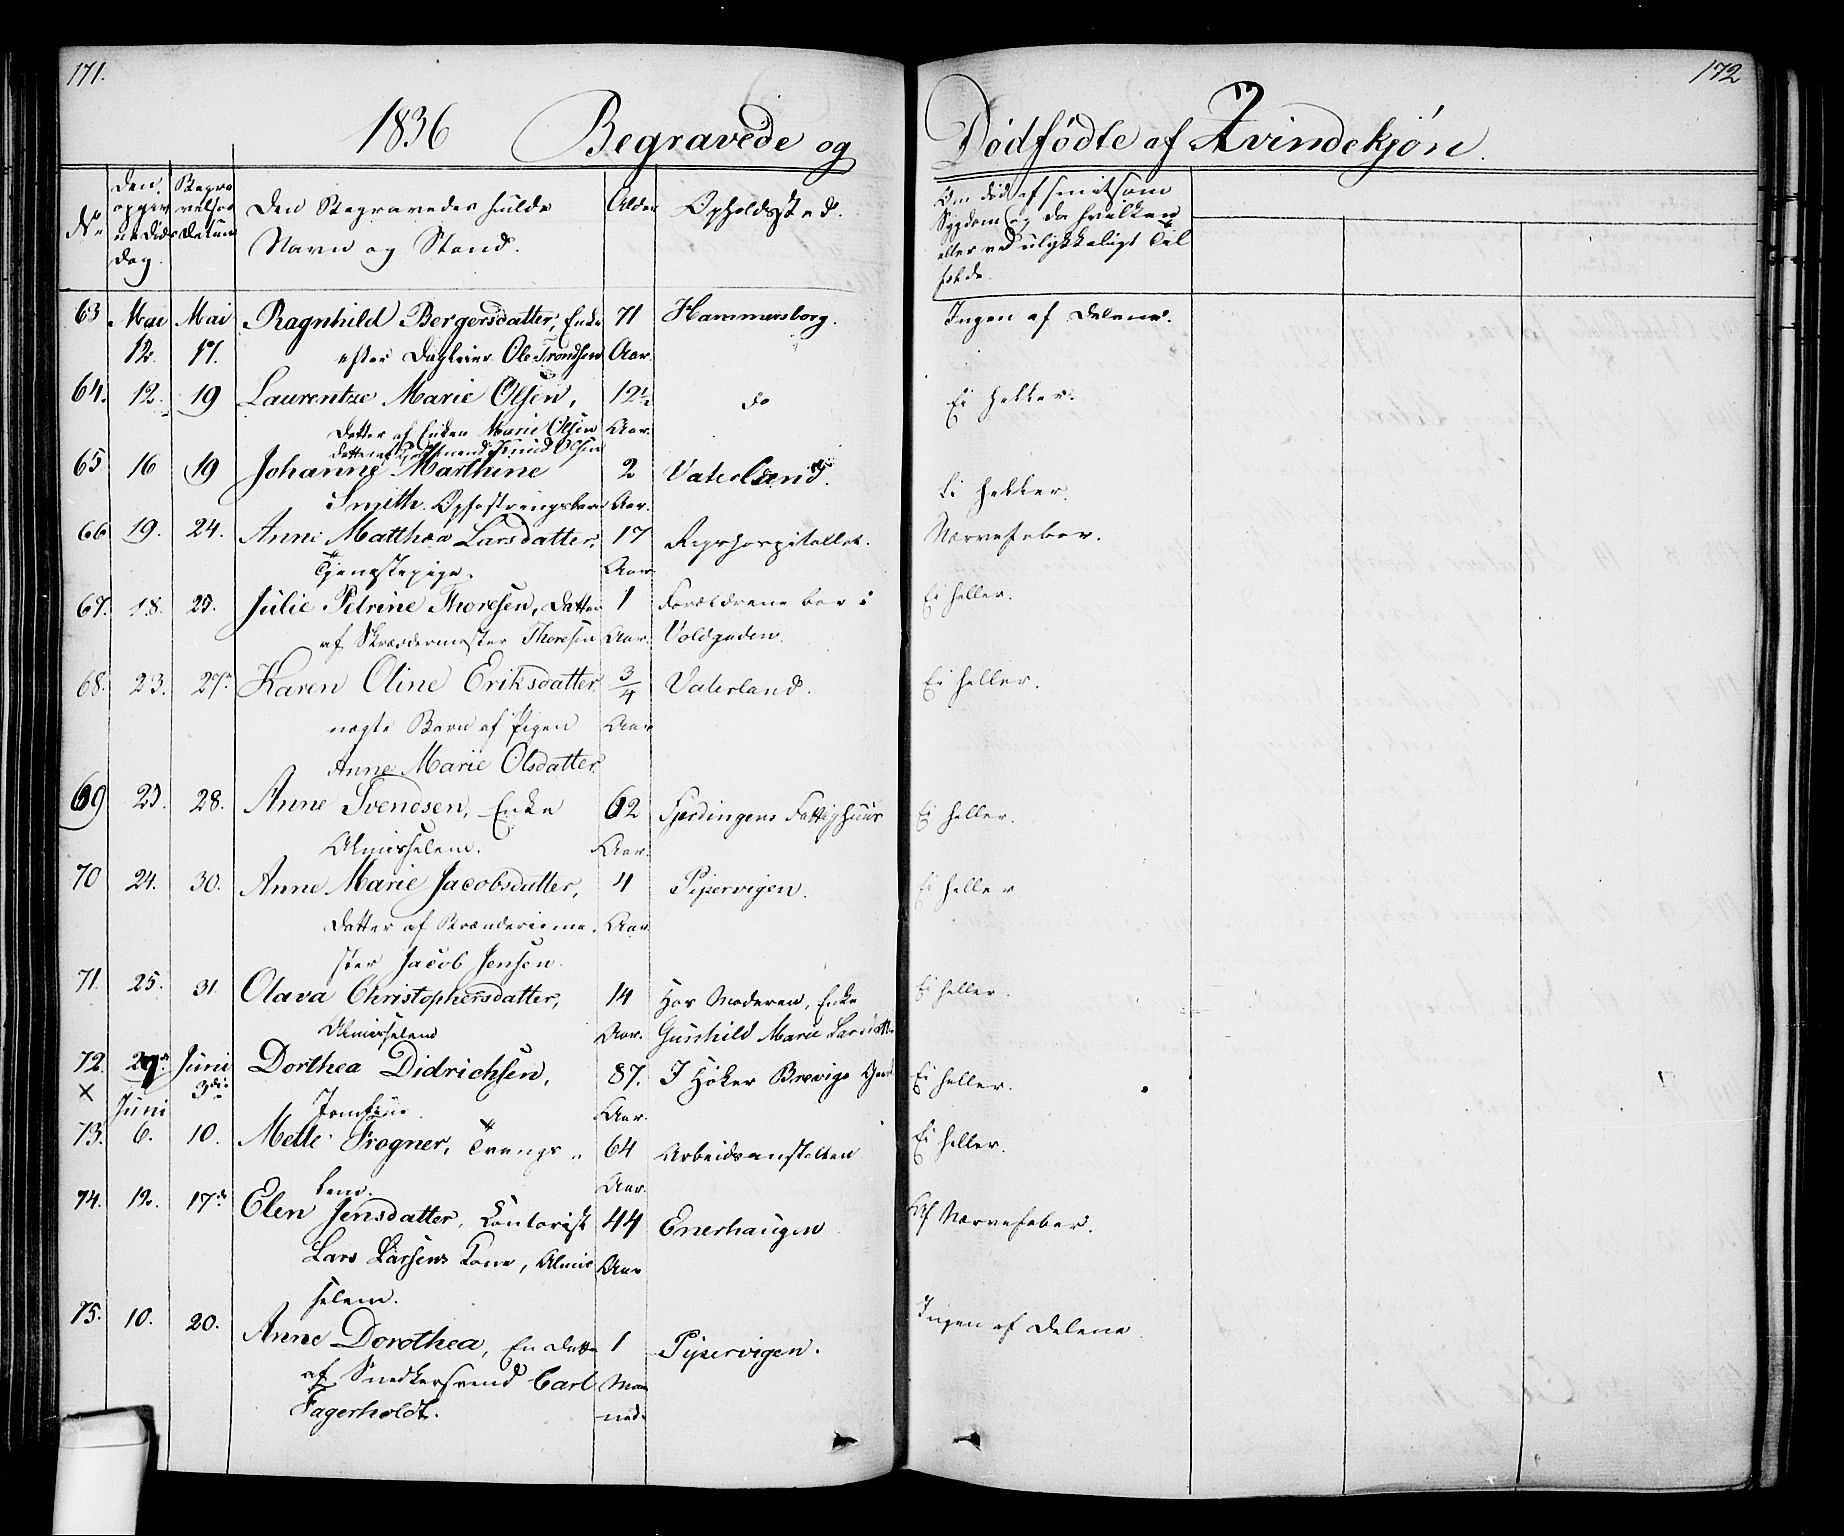 171.
172
1836 Begravede og Dødfødte af Qvindekjøn.
No
Den opgivne Døds Dag
Begravelses Datum
Den Begravedes fulde Navn og Stand.
Alder
Opholdssted.
Om død af smitsom Sygdom og da hvilken eller ved ulykkeligt Tilfælde.
63 Mai Mai Ragnhild Bergersdatter, Enke 71 Hammersborg. Ingen af Delene.
12. 17. efter Dagleier Ole Trondsen Aar.
64. 12. 19 Laurentze Marie Olsen, 12½ do Ei heller.
Datter af Enken Marie Olsen Aar.
65 16 19 Johanne Marthine 2 Vaterland. Ei heller.
Smith. Opfostringsbarn Aar.
66 19. 24. Anne Matthea Larsdatter, 17 Rigshospitallet. Nervefeber.
Tjenestepige. Aar.
67. 18. 25. Julie Petrine Thoresen, Datter 1 Forældrene boe i Ei heller.
af Skrædermester Thoresen Aar. Voldgaden.
68. 23. 27. Karen Oline Eriksdatter 3/4 Vaterland. Ei heller.
uægte Barn af Pigen Aar
Anne Marie Olsdatter.
69 23. 28. Anne Svendsen, Enke 62 Fjerdingens Fattighuus Ei heller.
Almisselem. Aar.
70 24. 30. Anne Marie Jacobsdatter, 4 Pipervigen. Ei heller
Datter af Brænderieme- Aar.
ster Jacob Jensen.
71. 25. 31. Olava Christophersdatter, 14 Hos Moderen, Enke Ei heller.
Almisselem Aar. Gunhild Marie Larsdatt.
72. Juni Dorthea Didrichsen, 87. I Høker Brevigs Gaard Ei heller.
× 3die Jomfrue. Aar.
Juni
73. 6. 10. Mette Frogner, Trangs- 64 Arbeidsanstalten Ei heller.
lem. Aar.
74. 12. 17de Elen Jensdatter, Contorist 44 Enerhaugen Af Nervefeber.
Lars Larsens Kone, Almis- Aar
selem.
75. 10. 20. Anne Dorothea, En Datter 1 Pipervigen. Ingen af Delene
af Snedkersvend Carl Maa-
Fagerholdt. ned.